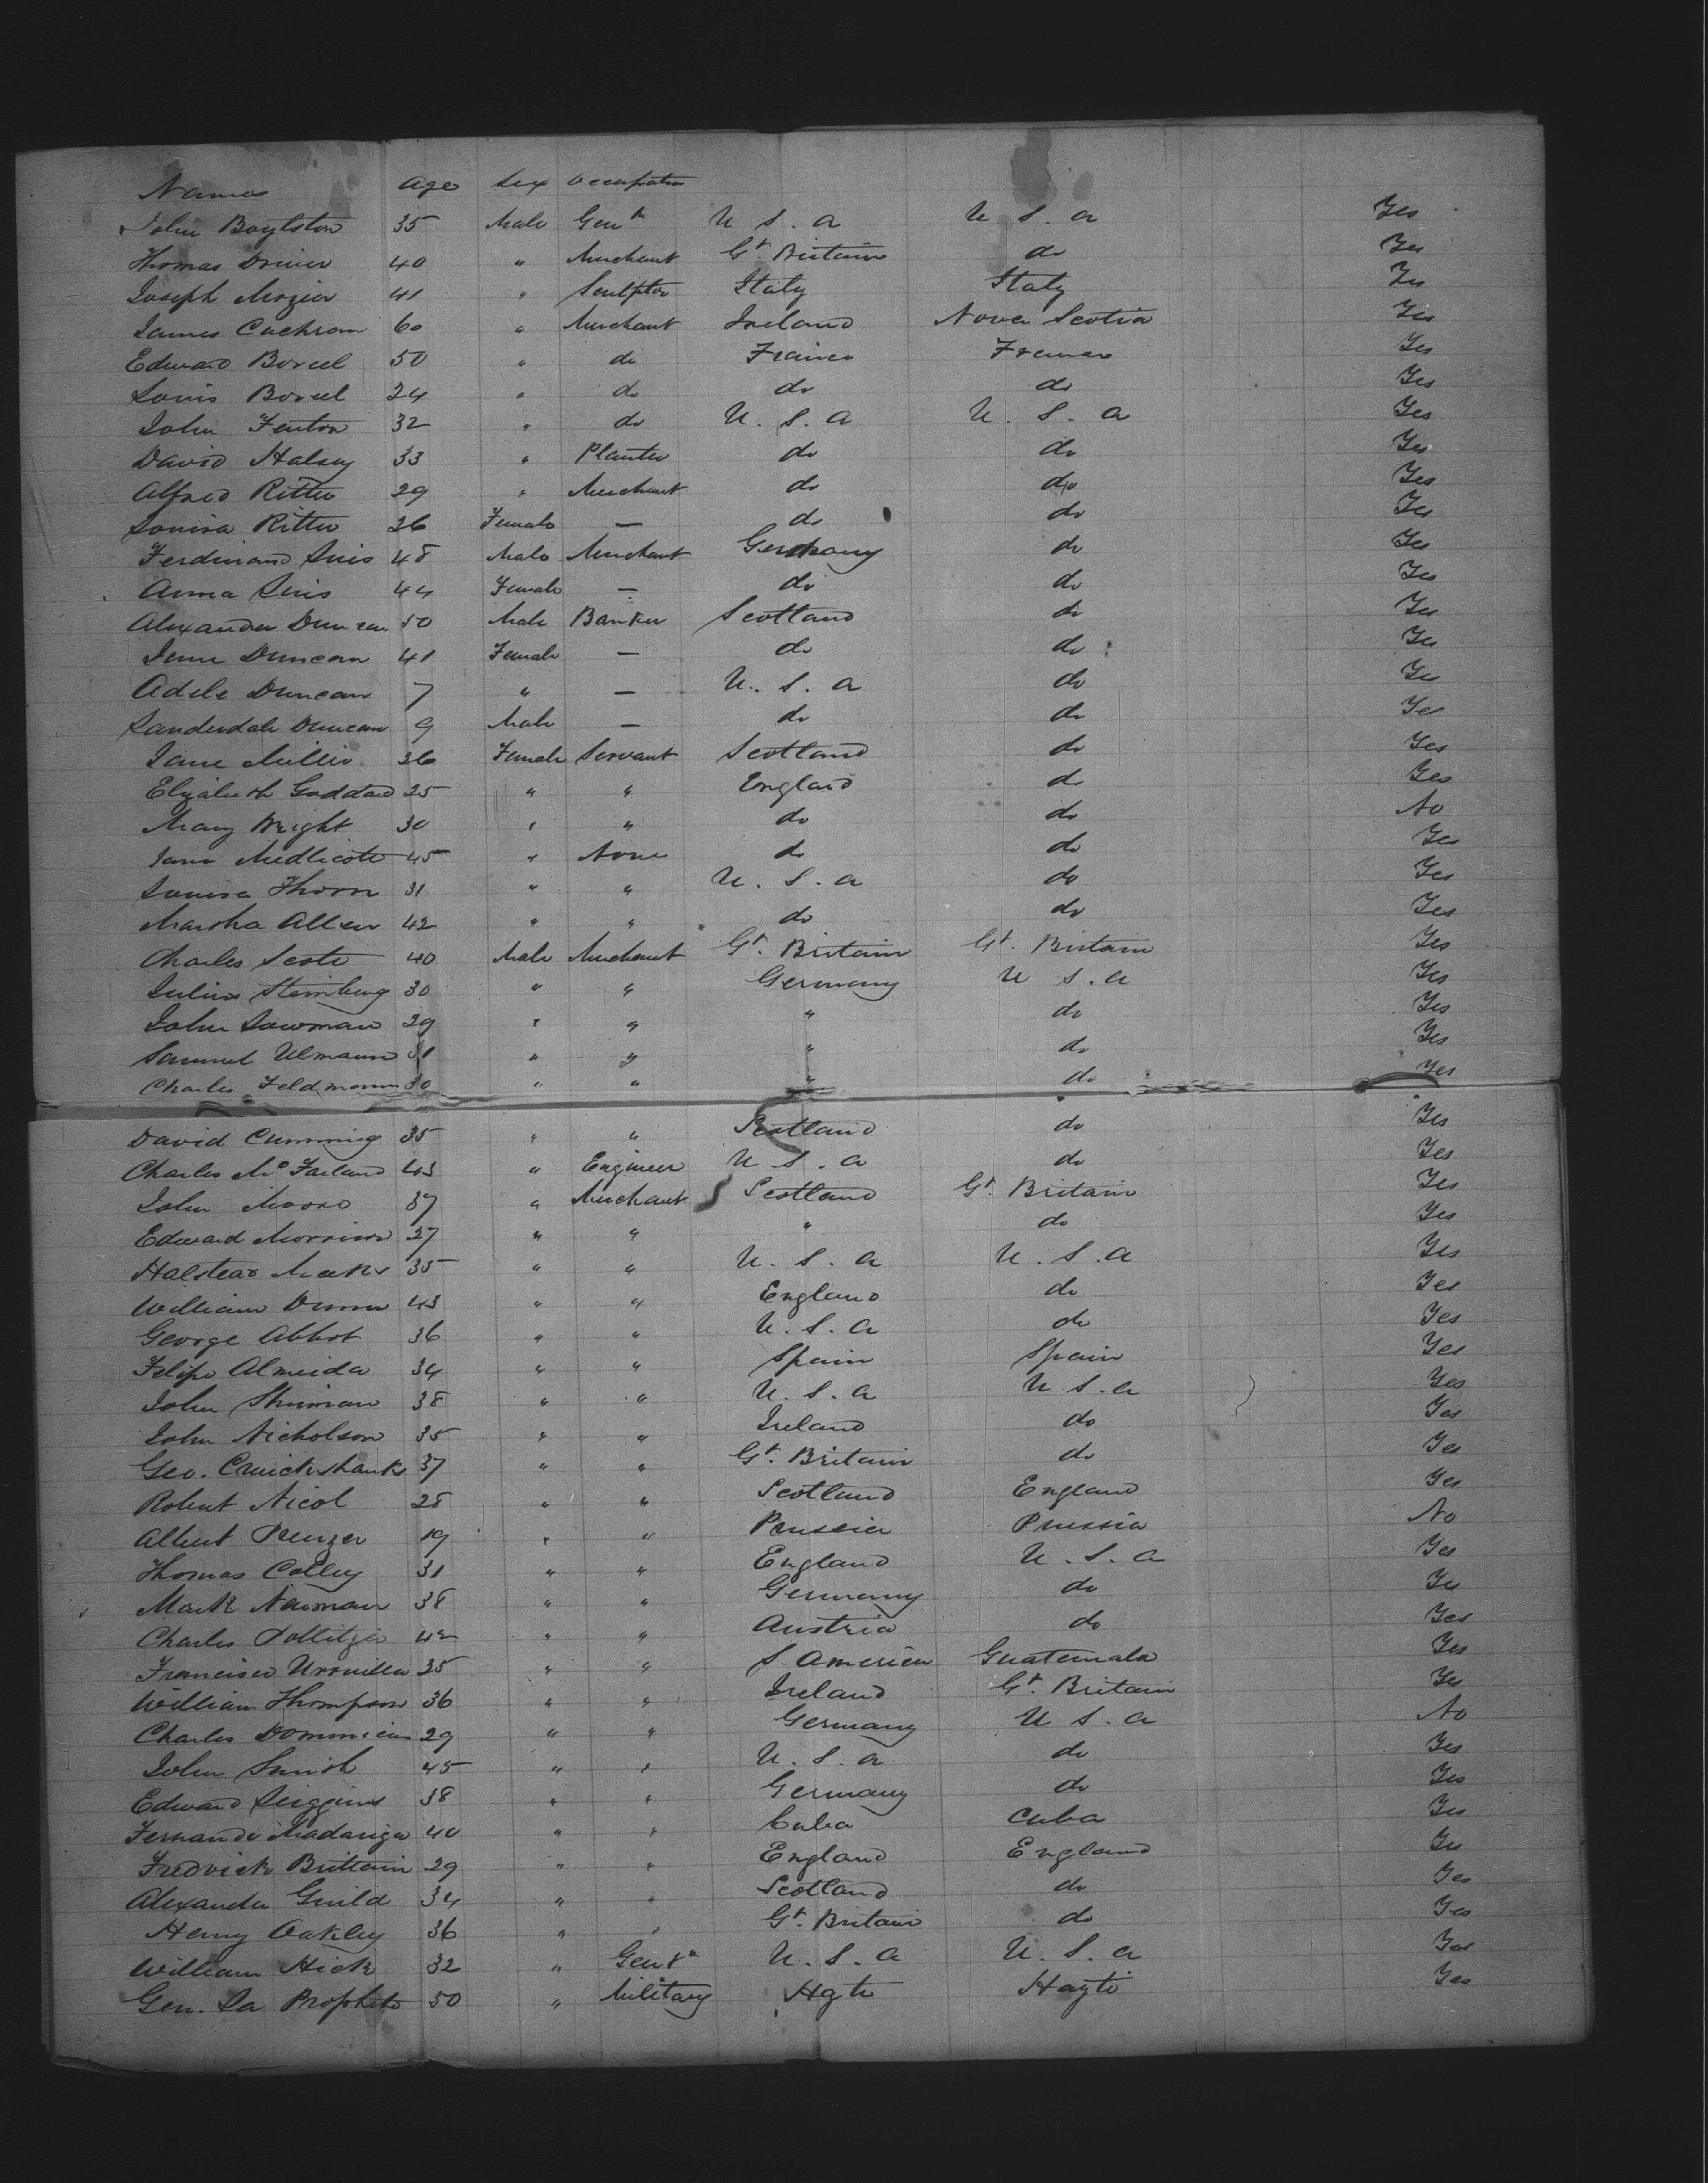 Names Age Sex Occupation
John Boylston 35 Male Gent U S. A U S. A Yes
Thomas Driver 40 " Merchant Gt. Britain do Yes
Joseph Mozier 41 " Sculptor Italy Italy Yes
James Cochran 60 " Merchant Ireland Nova Scotia Yes
Edward Boreel 50 " do France France Yes
Louis Boreel 24 " do do do Yes
John Fenton 32 " do U. S. A U. S. A Yes
David Halsey 33 " Planter do do Yes
Alfred Ritter 29 " Merchant do do Yes
Louisa Ritter 26 Female — do do Yes
Ferdinand 48 Male Merchant Germany do Yes
Anna 44 Female — do do Yes
Alexander Duncan 50 Male Banker Scotland do Yes
Jane Duncan 41 Female — do do Yes
Adele Duncan 7 " — U. S. A do Yes
Duncan 9 Male — do do Yes
Jane Miller 36 Female Servant Scotland do Yes
Elizabeth Goddard 25 " " England do Yes
Mary Bright 30 " " do do No
Jane Medlicott 45 " None do do Yes
Louisa Thorn 31 " " U. S. A do Yes
Martha Allen 42 " " do do Yes
Charles Scott 40 Male Merchant Gt. Britain Gt. Britain Yes
Julius Steinberg 30 " " Germany U S. A Yes
John Lowman 29 " " " do Yes
Samuel Ulmann 31 " " " do Yes
Charles Feldmann 30 " " " do Yes
David Cumming 35 " " Scotland do Yes
Charles McFarland 43 " Engineer U S. A do Yes
John Moore 37 " Merchant Scotland Gt. Britain Yes
Edward Morrison 27 " " " do Yes
Halstead Meeks 35 " " U. S. A U. S. A Yes
William 43 " " England do Yes
George Abbot 36 " " U. S. A do Yes
Felipe Almeida 34 " " Spain Spain Yes
John 38 " " U. S. A U S. A Yes
John Nicholson 35 " " Ireland do Yes
Geo. Cruickshanks 37 " " Gt. Britain do Yes
Robert Nicol 28 " " Scotland England Yes
Albert 19 " " Prussia Prussia No
Thomas Colley 31 " " England U. S. A Yes
Mark Nauman 38 " " Germany do Yes
Charles Pollitzer 42 " " Austria do Yes
Francisco Urruella 35 " " S America Guatemala Yes
William Thompson 36 " " Ireland Gt. Britain Yes
Charles Dominicus 29 " " Germany U S. A No
John 45 " " U. S. A do Yes
Edward 38 " " Germany do Yes
Fernando Madariga 40 " " Cuba Cuba Yes
Fredrick Brittain 29 " " England England Yes
Alexander Guild 34 " " Scotland do Yes
Henry Oakley 36 " " Gt. Britain do Yes
William Hick 32 " Gentn U. S. A U. S. A Yes
Gen. La Prophete 50 " Military Hayti Yes